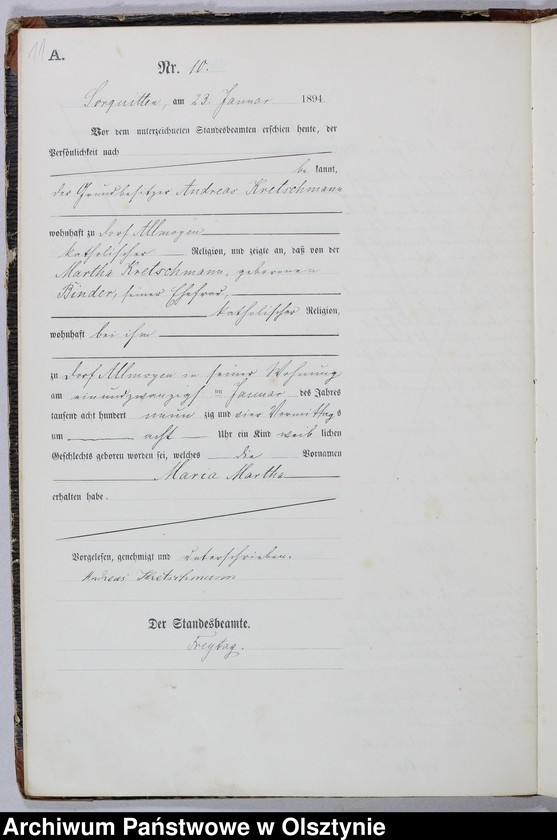 11
A.
Nr. 10.
Sorquitten, am 23. Januar 1894.
Vor dem unterzeichneten Standesbeamten erschien heute, der
Persönlichkeit nach
be kannt,
der Grundbesitzer Andreas Kretschmann
wohnhaft zu Dorf Allmoyen
katholischer Religion, und zeigte an, daß von der
Martha Kretschmann, geborenen
Binder, seiner Ehefrau,
katholischer Religion,
wohnhaft bei ihm
zu Dorf Allmoyen in seiner Wohnung
am einundzwanzigsten Januar des Jahres
tausend acht hundert neun zig und vier Vormittags
um acht Uhr ein Kind weib lichen
Geschlechts geboren worden sei, welches die Vornamen
Maria Martha
erhalten habe.
Vorgelesen, genehmigt und unterschrieben.
Andreas Kretschmann
Der Standesbeamte.
Freytag.
Archiwum Państwowe w Olsztynie